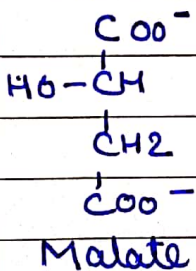 COO⁻
HO-CH
CH2
COO⁻
Malate